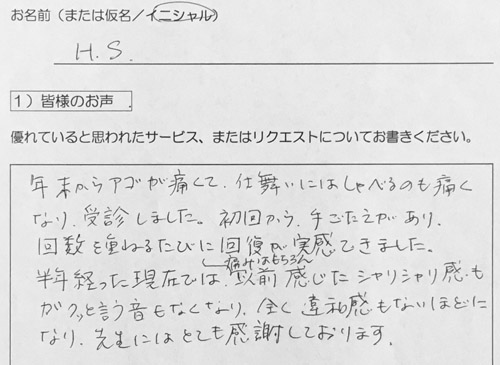 お名前（または仮名／イニシャル）
H.S.
1）皆様のお声
優れていると思われたサービス、またはリクエストについてお書きください。
年末からアゴが痛くて、仕舞いにはしゃべるのも痛く
なり、受診しました。初回から、手ごたえがあり、
回数を重ねるたびに回復が実感できました。
痛みはもちろん
半年経った現在では、以前感じたシャリシャリ感も
ガクッと言う音もなくなり、全く違和感もないほどに
なり、先生にはとても感謝しております。